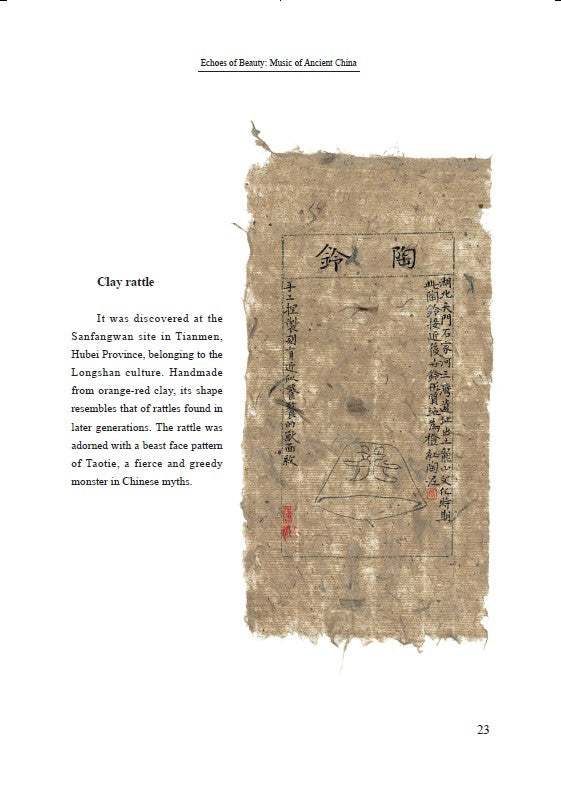 Echoes of Beauty: Music of Ancient China
Clay rattle
It was discovered at the
Sanfangwan site in Tianmen,
Hubei Province, belonging to the
Longshan culture. Handmade
from orange-red clay, its shape
resembles that of rattles found in
later generations. The rattle was
adorned with a beast face pattern
of Taotie, a fierce and greedy
monster in Chinese myths.
陶鈴
湖北天門石家河三灣遺址出土龍山文化時期
此陶鈴接近後古鈴質地為橙紅陶
手工捏製刻有近似饕餮的獸面紋
23